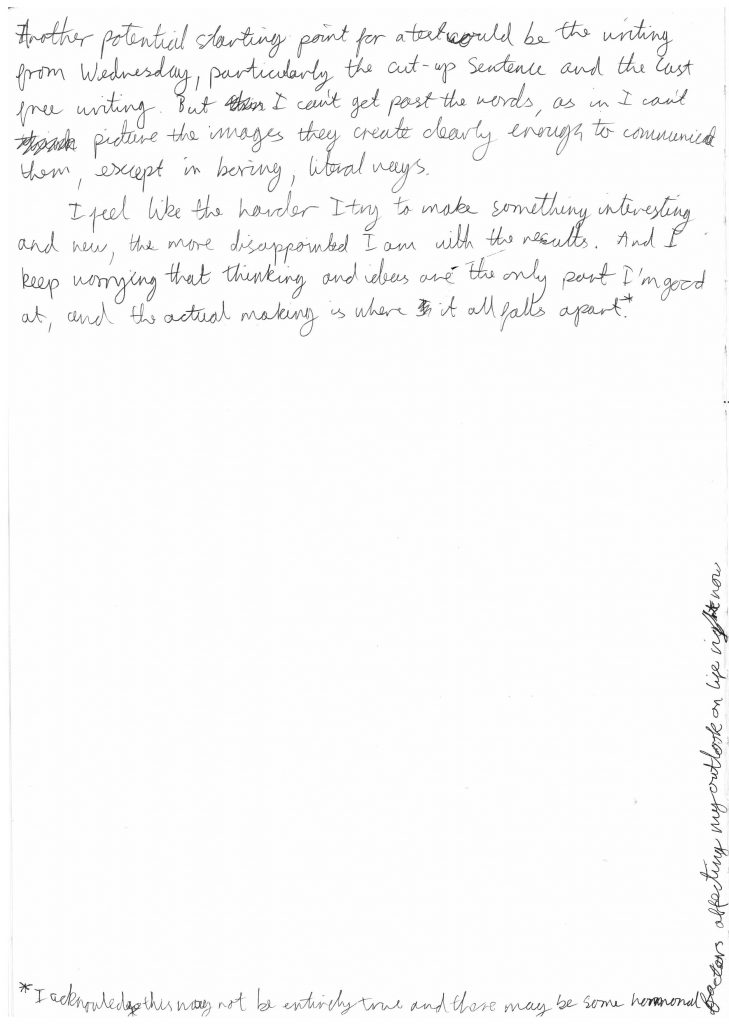 Another potential starting point for a text could be the writing
from Wednesday, particularly the cut-up sentence and the last
free writing. But I can't get past the words, as in I can't
picture the images they create clearly enough to communicate
them, except in boring, literal ways.
I feel like the harder I try to make something interesting
and new, the more disappointed I am with the results. And I
keep worrying that thinking and ideas are the only part I'm good
at, and the actual making is where it all falls apart.*
*I acknowledge this may not be entirely true and there may be some hormonal
factors affecting my outlook on life right now